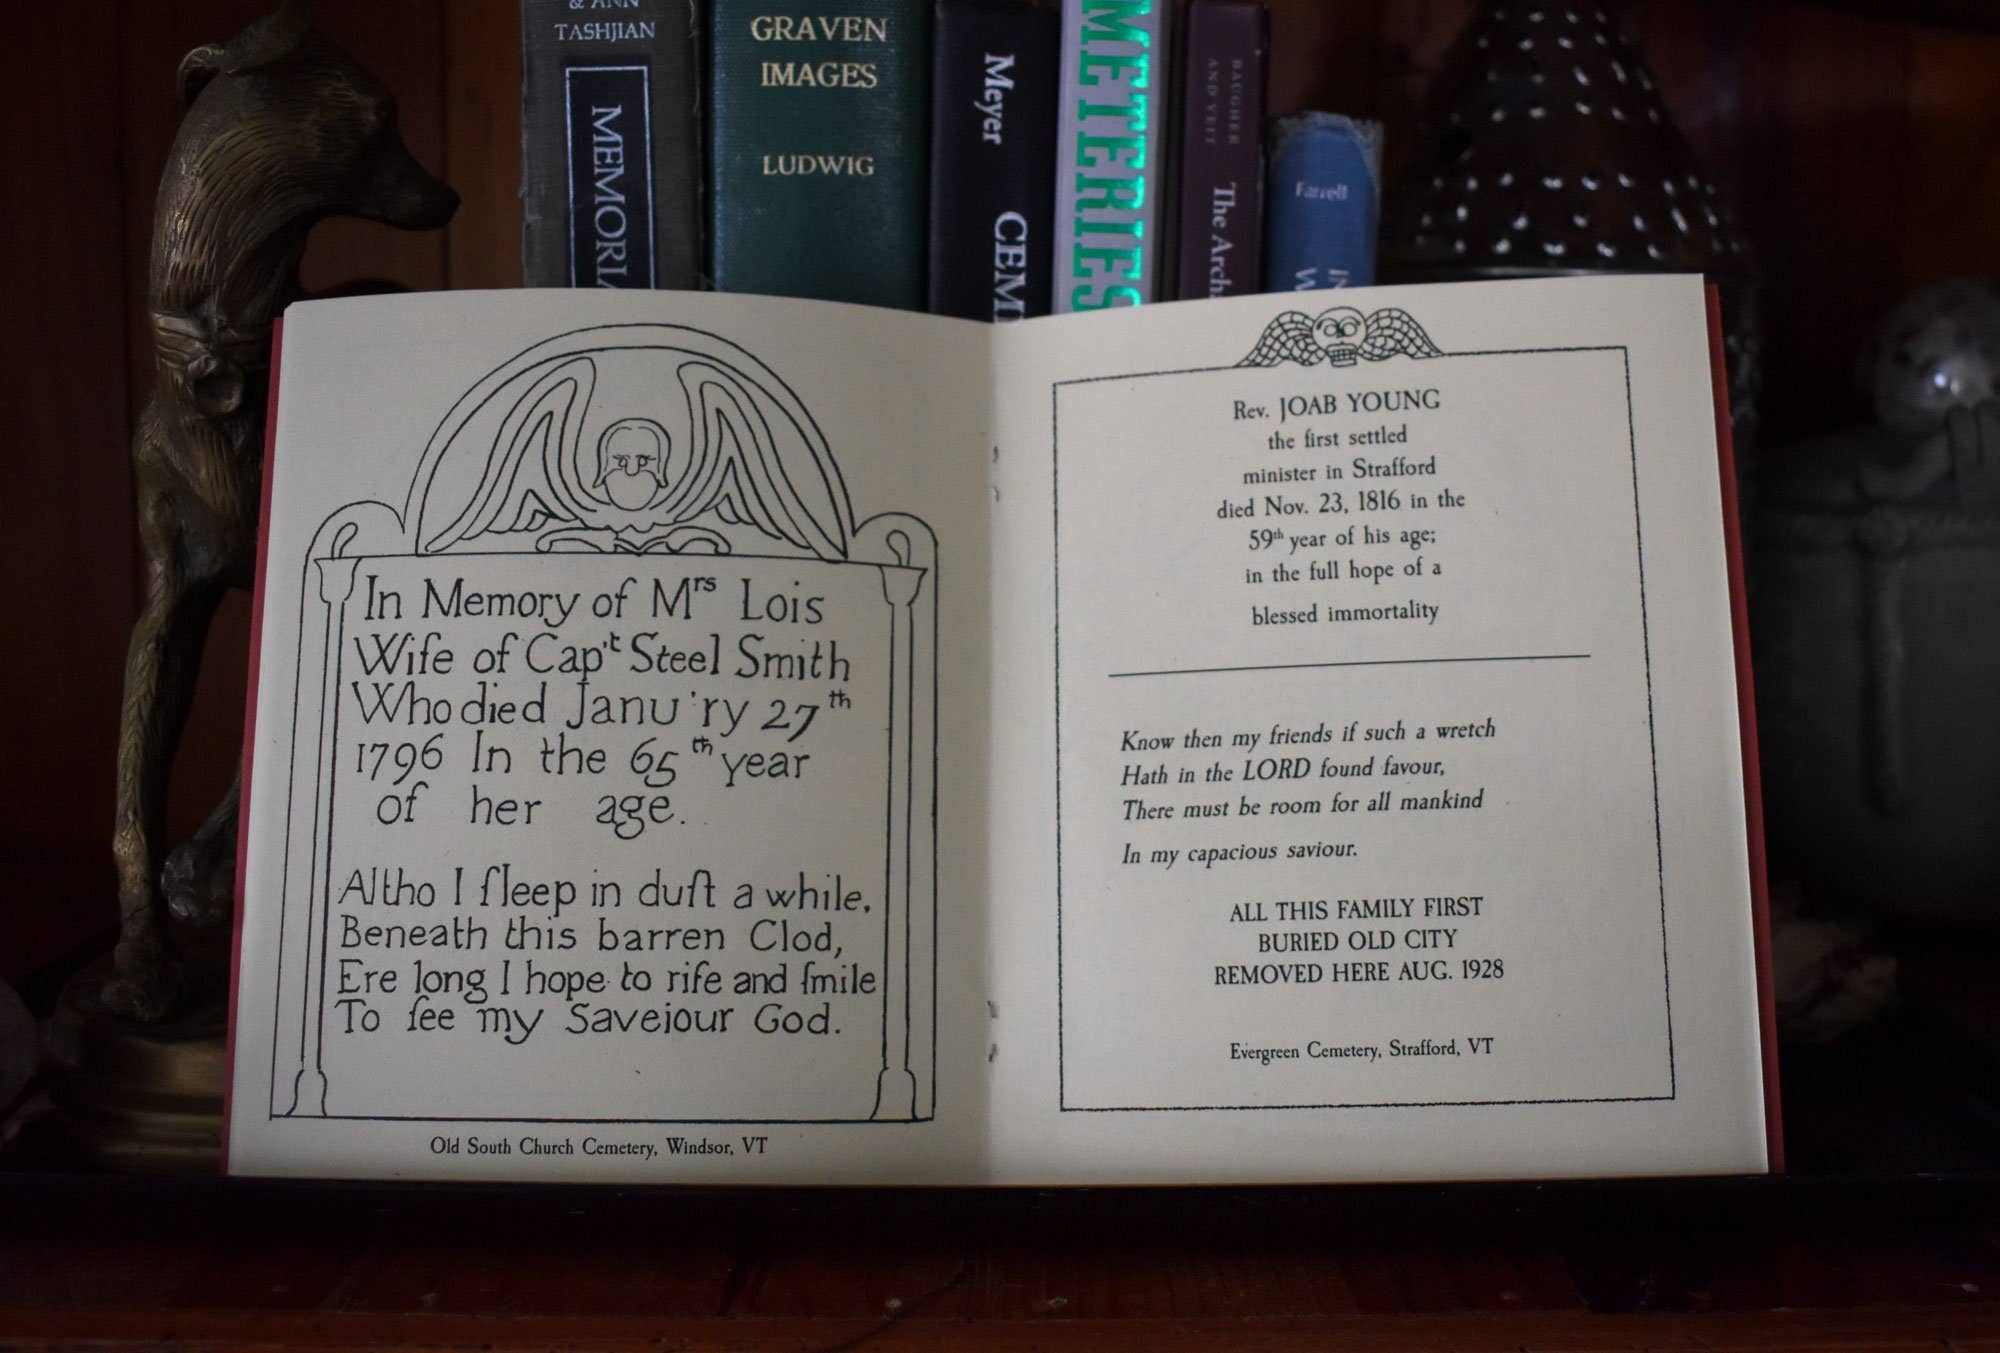 & ANN
TASHJIAN
MEMORIA
GRAVEN
IMAGES
LUDWIG
Meyer
CEM
METERIES
BAUGHER
AND VEIT
The Arch
Farrell
IN
W
In Memory of Mrs Lois
Wife of Cap't Steel Smith
Who died Janu'ry 27th
1796 In the 65th year
of her age.
Altho I ſleep in duſt a while,
Beneath this barren Clod,
Ere long I hope to riſe and ſmile
To ſee my Saveiour God.
Old South Church Cemetery, Windsor, VT
Rev. JOAB YOUNG
the first settled
minister in Strafford
died Nov. 23, 1816 in the
59th year of his age;
in the full hope of a
blessed immortality
Know then my friends if such a wretch
Hath in the LORD found favour,
There must be room for all mankind
In my capacious saviour.
ALL THIS FAMILY FIRST
BURIED OLD CITY
REMOVED HERE AUG. 1928
Evergreen Cemetery, Strafford, VT